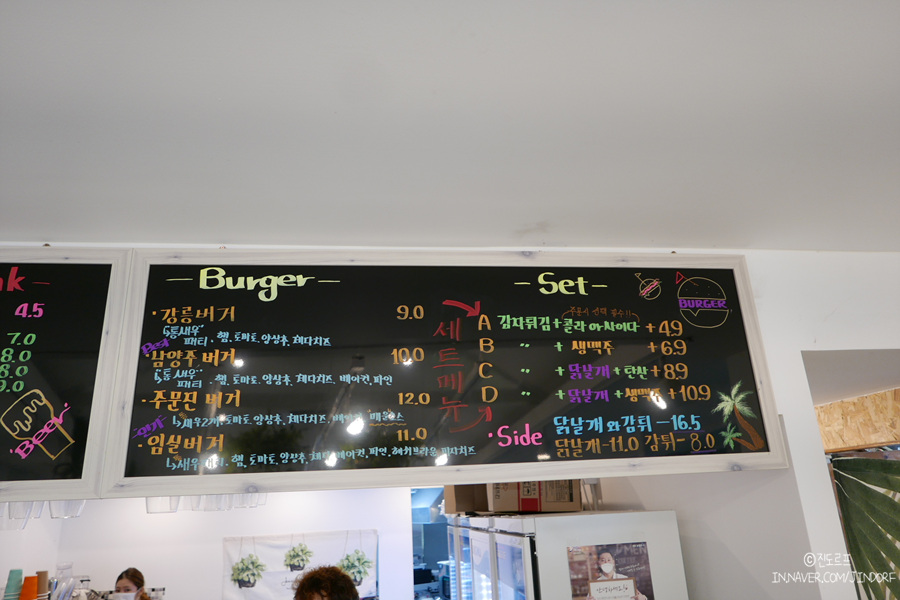 4.5
7.0
8.0
8.0
9.0
Beer
- Burger -
· 강릉버거 9.0
통새우 패티, 햄, 토마토, 양상추, 체다치즈
Best
· 남양주 버거 10.0
통새우 패티, 햄, 토마토, 양상추, 체다치즈, 베이컨, 파인
· 주문진 버거 12.0
새우 2개, 토마토, 양상추, 체다치즈
· 임실버거 11.0
새우 햄, 토마토, 양상추, 베이컨, 파인, 해쉬브라운, 치즈
세트메뉴
- Set -
BURGER
주문시 선택 필수!!
A 감자튀김+콜라 or 사이다 +4.9
B " + 생맥주 +6.9
C " + 닭날개 + 탄산 +8.9
D " + 닭날개 + 생맥주 +10.9
· Side 닭날개 와 감튀 -16.5
닭날개 -11.0 감튀- 8.0
©진도르프
IN.NAVER.COM/JINDORF